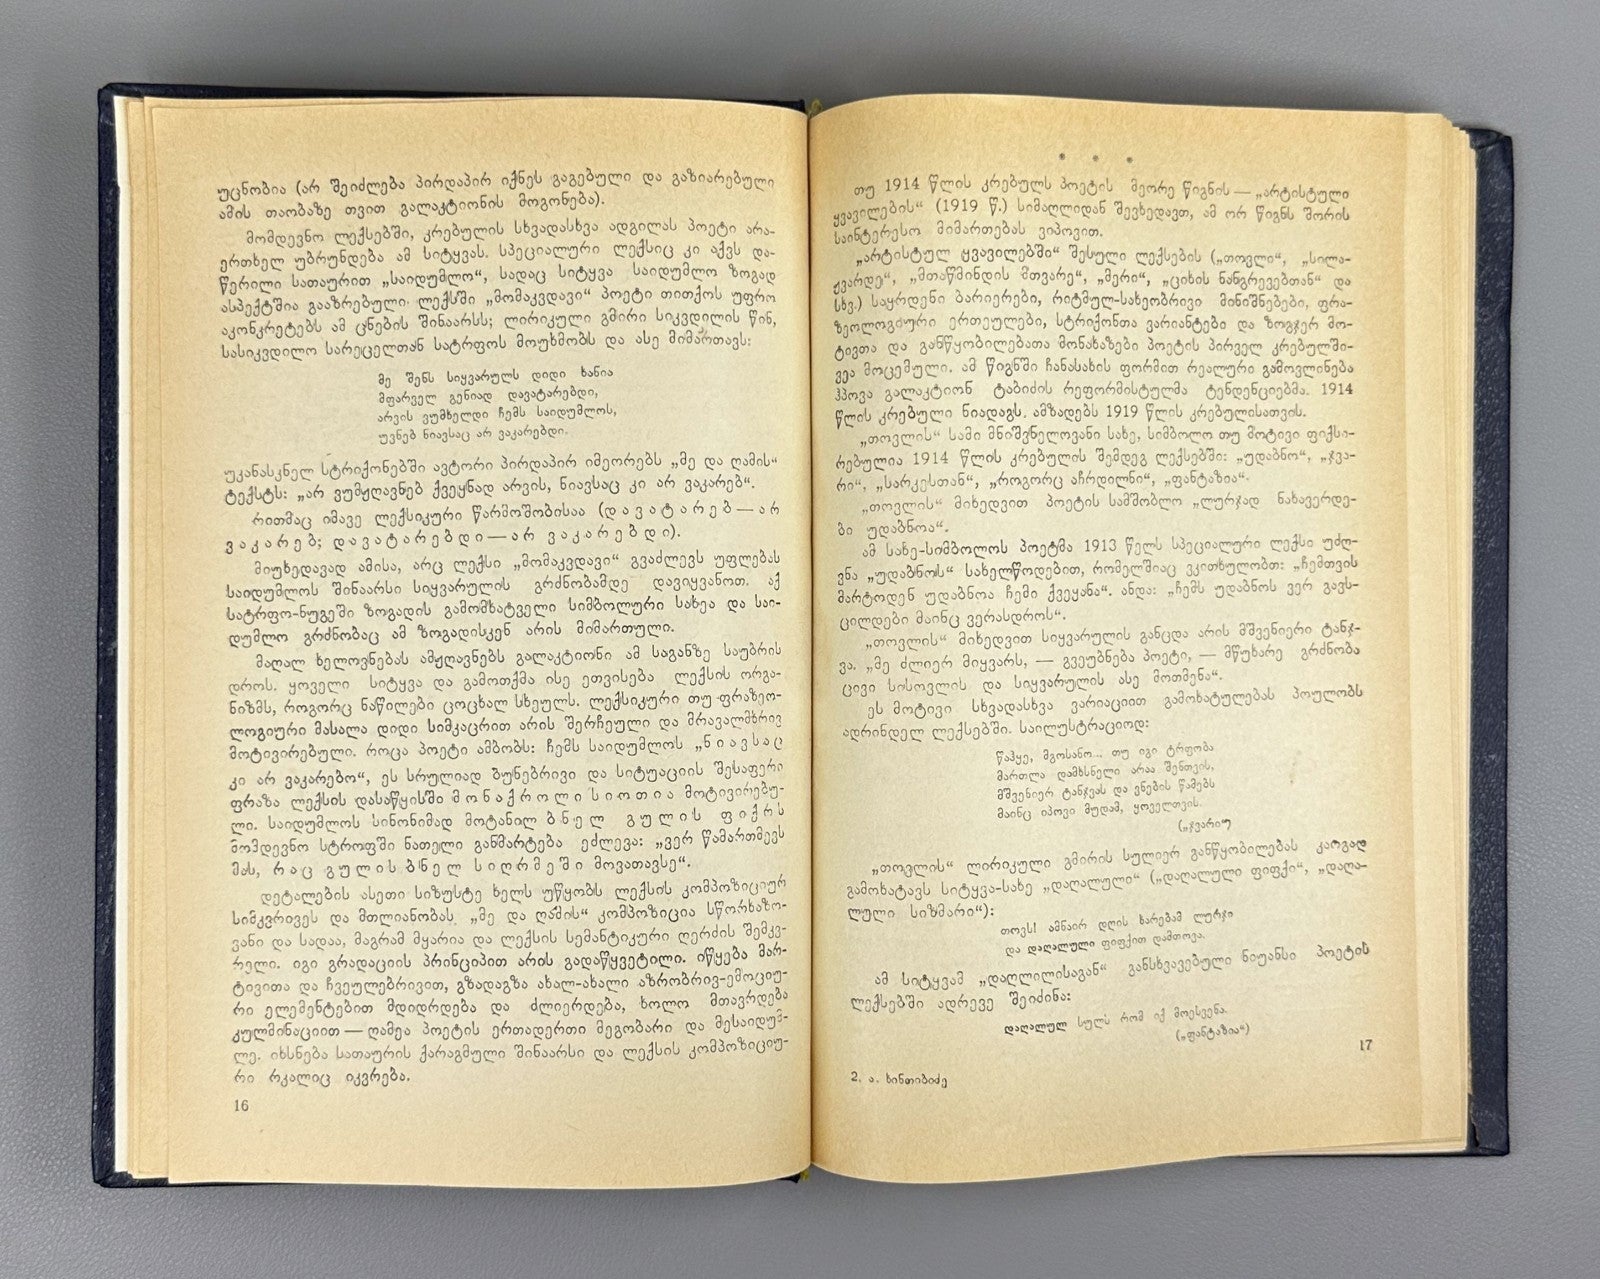 უცნობია (არ შეიძლება პირდაპირ იქნეს გაგებული და გაზიარებული
ამის თაობაზე თვით გალაკტიონის მოგონება).
მომდევნო ლექსებში, კრებულის სხვადასხვა ადგილას პოეტი არა-
ერთხელ უბრუნდება ამ სიტყვას. სპეციალური ლექსიც კი აქვს და-
წერილი სათაურით „საიდუმლო“, სადაც სიტყვა საიდუმლო ზოგად
ასპექტშია გააზრებული. ლექსში „მომაკვდავი“ პოეტი თითქოს უფრო
აკონკრეტებს ამ ცნების შინაარსს; ლირიკული გმირი სიკვდილის წინ,
სასიკვდილო სარეცელთან სატრფოს მოუხმობს და ასე მიმართავს:
მე შენს სიყვარულს დიდი ხანია
მფარველ გენიად დავატარებდი,
არვის ვუმხელდი ჩემს საიდუმლოს,
უვნებ ნიავსაც არ ვაკარებდი.
უკანასკნელ სტრიქონებში ავტორი პირდაპირ იმეორებს „მე და ღამის“
ტექსტს: „არ ვუმჟღავნებ ქვეყნად არვის, ნიავსაც კი არ ვაკარებ“.
რითმაც იმავე ლექსიკური წარმოშობისაა (დავატარებ — არ
ვაკარებ; დავატარებდი — არ ვაკარებდი).
მიუხედავად ამისა, არც ლექსი „მომაკვდავი“ გვაძლევს უფლებას
საიდუმლოს შინაარსი სიყვარულის გრძნობამდე დავიყვანოთ. აქ
სატრფო-ნუგეში ზოგადის გამომხატველი სიმბოლური სახეა და საი-
დუმლო გრძნობაც ამ ზოგადისკენ არის მიმართული.
მაღალ ხელოვნებას ამჟღავნებს გალაკტიონი ამ საგანზე საუბრის
დროს. ყოველი სიტყვა და გამოთქმა ისე ეთვისება ლექსის ორგა-
ნიზმს, როგორც ნაწილები ცოცხალ სხეულს. ლექსიკური თუ ფრაზეო-
ლოგიური მასალა დიდი სიმკაცრით არის შერჩეული და მრავალმხრივ
მოტივირებული. როცა პოეტი ამბობს: ჩემს საიდუმლოს „ნიავსაც
კი არ ვაკარებო“, ეს სრულიად ბუნებრივი და სიტუაციის შესაფერი
ფრაზა ლექსის დასაწყისში მონაქროლი სიოთია მოტივირებუ-
ლი. საიდუმლოს სინონიმად მოტანილ ბნელ გულის ფიქრს
მომდევნო სტროფში ნათელი განმარტება ეძლევა: „ვერ წამართმევს
მას, რაც გულის ბნელ სიღრმეში მოვათავსე“.
დეტალების ასეთი სიზუსტე ხელს უწყობს ლექსის კომპოზიციურ
სიმკვრივეს და მთლიანობას. „მე და ღამის“ კომპოზიცია სწორხაზო-
ვანი და სადაა, მაგრამ მყარია და ლექსის სემანტიკური ღერძის შემკვ-
რელი. იგი გრადაციის პრინციპით არის გადაწყვეტილი. იწყება მარ-
ტივითა და ჩვეულებრივით, გზადაგზა ახალ-ახალი აზრობრივ-ემოციუ-
რი ელემენტებით მდიდრდება და ძლიერდება, ხოლო მთავრდება
კულმინაციით — ღამეა პოეტის ერთადერთი მეგობარი და მესაიდუმ-
ლე. იხსნება სათაურის ქარაგმული შინაარსი და ლექსის კომპოზიციუ-
რი რკალიც იკვრება.
16
* * *
თუ 1914 წლის კრებულს პოეტის მეორე წიგნის — „არტისტული
ყვავილების“ (1919 წ.) სიმაღლიდან შევხედავთ, ამ ორ წიგნს შორის
საინტერესო მიმართებას ვიპოვით.
„არტისტულ ყვავილებში“ შესული ლექსების („თოვლი“, „სილა-
ჟვარდე“, „მთაწმინდის მთვარე“, „მერი“, „ციხის ნანგრევებთან“ და
სხვ.) საყრდენი ბარიერები, რიტმულ-სახეობრივი მინიშნებები, ფრა-
ზეოლოგიური ერთეულები, სტრიქონთა ვარიანტები და ზოგჯერ მო-
ტივთა და განწყობილებათა მონახაზები პოეტის პირველ კრებულში-
ვეა მოცემული. ამ წიგნში ჩანასახის ფორმით რეალური გამოვლინება
ჰპოვა გალაკტიონ ტაბიძის რეფორმისტულმა ტენდენციებმა. 1914
წლის კრებული ნიადაგს. ამზადებს 1919 წლის კრებულისათვის.
„თოვლის“ სამი მნიშვნელოვანი სახე, სიმბოლო თუ მოტივი ფიქსი-
რებულია 1914 წლის კრებულის შემდეგ ლექსებში: „უდაბნო“, „ჯვა-
რი“, „სარკესთან“, „როგორც აჩრდილნი“, „ფანტაზია“.
„თოვლის“ მიხედვით პოეტის სამშობლო „ლურჯად ნახავერდე-
ბი უდაბნოა“.
ამ სახე-სიმბოლოს პოეტმა 1913 წელს სპეციალური ლექსი უძღ-
ვნა „უდაბნოს“ სახელწოდებით, რომელშიაც ვკითხულობთ: „ჩემთვის
მარტოდენ უდაბნოა ჩემი ქვეყანა“. ანდა: „ჩემს უდაბნოს ვერ გავს-
ცილდები მაინც ვერასდროს“.
„თოვლის“ მიხედვით სიყვარულის განცდა არის მშვენიერი ტანჯ-
ვა. „მე ძლიერ მიყვარს, — გვეუბნება პოეტი, — მწუხარე გრძნობა
ცივი სისოვლის და სიყვარულის ასე მოთმენა“.
ეს მოტივი სხვადასხვა ვარიაციით გამოხატულებას პოულობს
ადრინდელ ლექსებში. საილუსტრაციოდ:
წაჰყე, მგოსანო... თუ იგი ტრფობა
მართლა დამხსნელი არაა შენთვის,
მშვენიერ ტანჯვას და ვნების წამებს
მაინც იპოვი მუდამ, ყოველთვის.
(„ჯვარი“)
„თოვლის“ ლირიკული გმირის სულიერ განწყობილებას კარგად
გამოხატავს სიტყვა-სახე „დაღალული“ („დაღალული ფიფქი“, „დაღა-
ლული სიზმარი“):
თოვს! ამნაირ დღის ხარებამ ლურჯი
და დაღალული ფიფქით დამთოვა.
ამ სიტყვამ „დაღლილისაგან“ განსხვავებული ნიუანსი პოეტის
ლექსებში ადრევე შეიძინა:
დაღალულ სულს რომ იქ მოესვენა.
(„ფანტაზია“)
17
2. ა. ხინთიბიძე